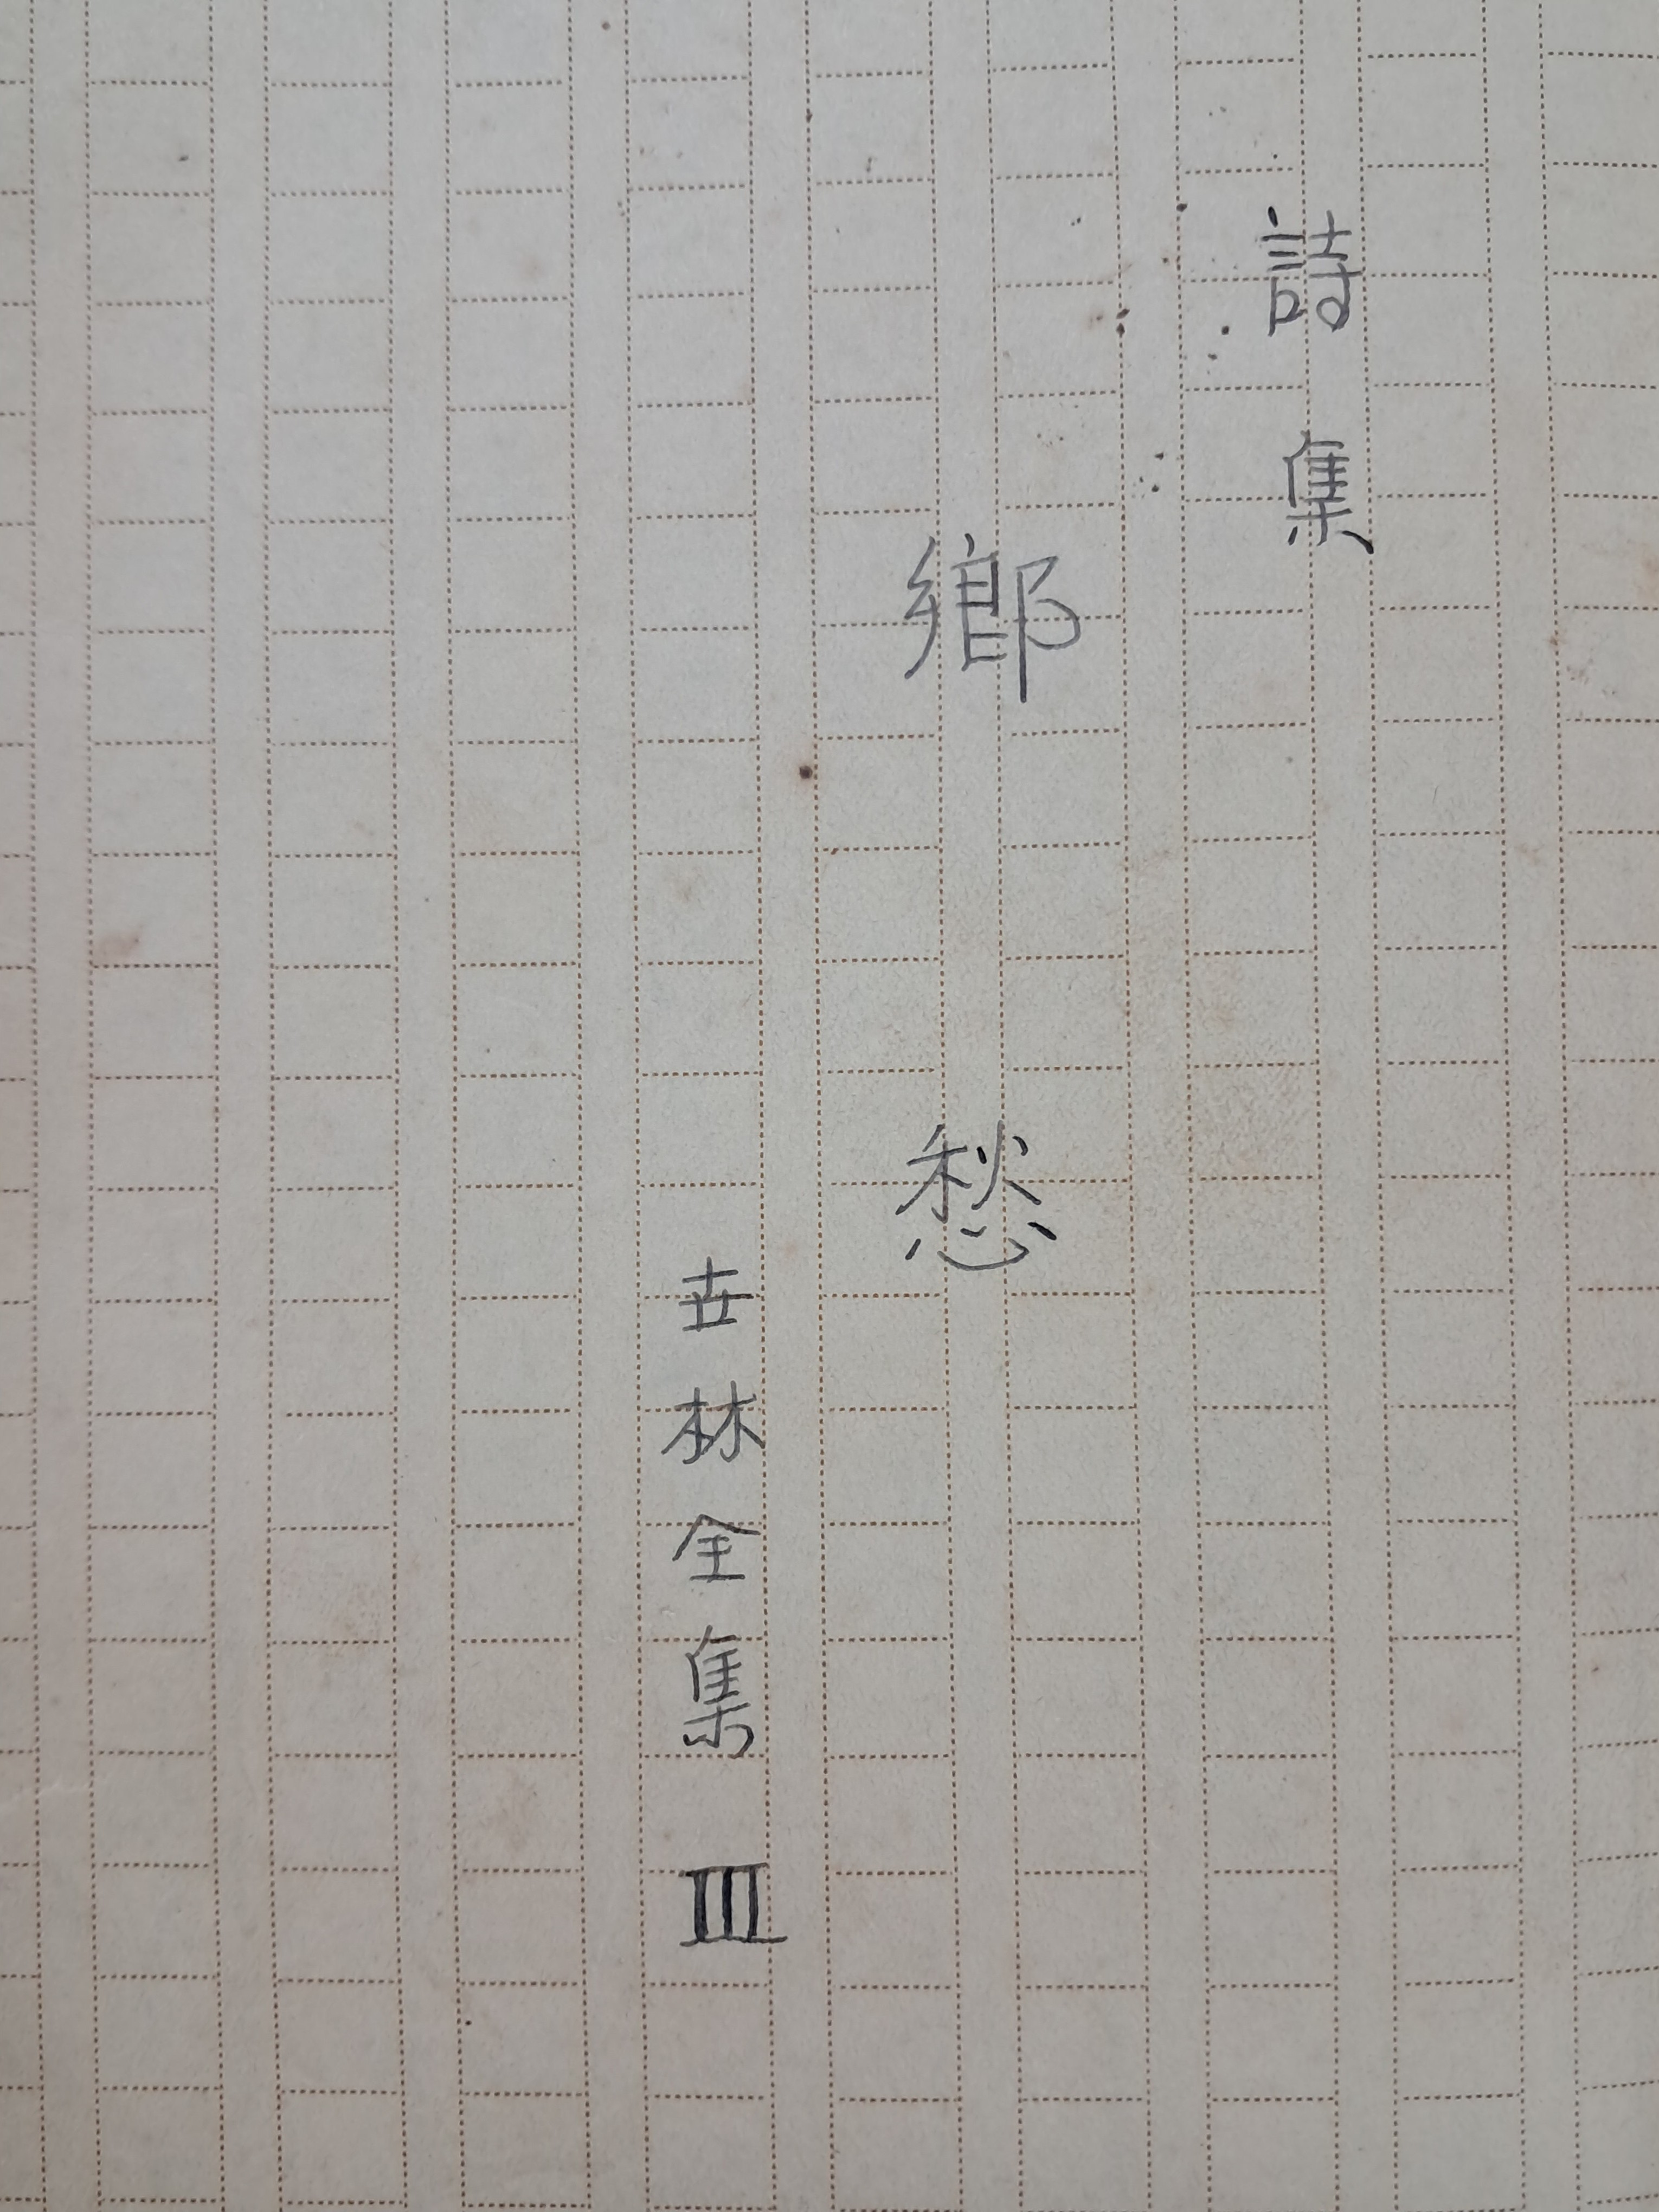 詩集
鄉愁
世林全集 Ⅲ